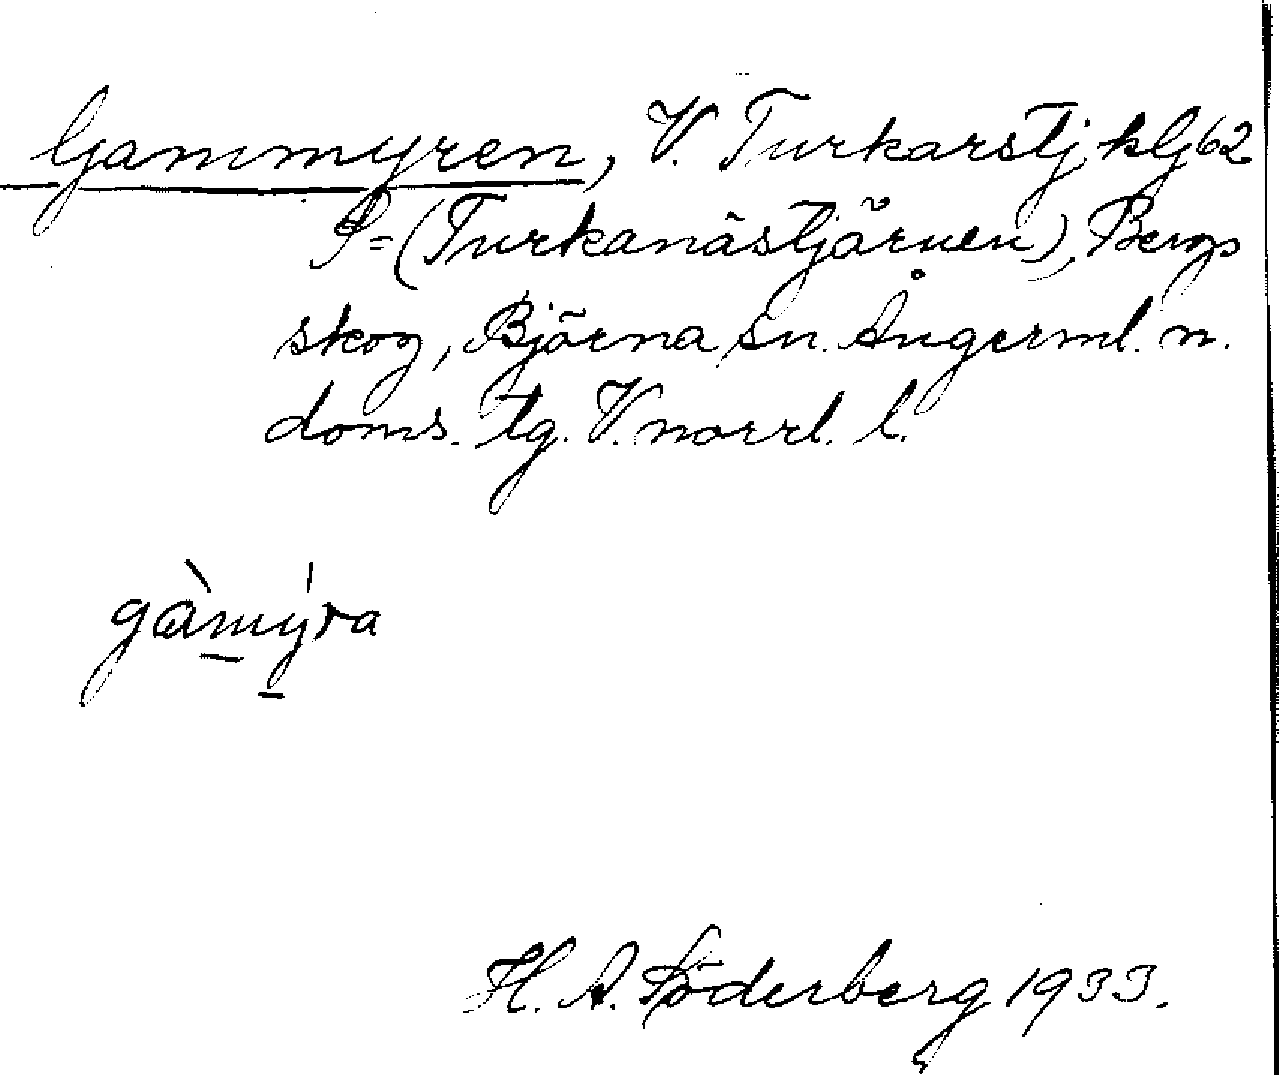 Gammyren, V. Turkarstj. klg 62
P = (Turkanästjärnen), Bergs
skog, Björna sn. Ångerml. n.
doms. lg. V. norrl. l.
gàmýra
H. A. Söderberg 1933.